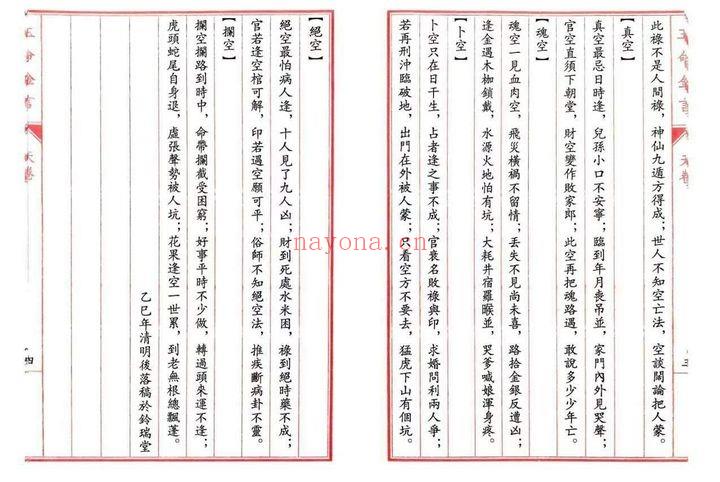 此祿不是人間祿，神仙九遁方得成；世人不知空亡法，空談闊論把人蒙。
【真空】
真空最忌日時逢，兒孫小口不安寧；臨到年月喪吊並，家門內外見哭聲；
官空直須下朝堂，財空變作敗家郎；此空再把魂路遇，敢說多少少年亡。
【魂空】
魂空一見血肉空，飛災橫禍不留情；丟失不見尚未喜，路拾金銀反遭凶；
逢金遇木枷鎖戴，水源火地怕有坑；大耗井宿羅睺並，哭爹喊娘渾身疼。
【卜空】
卜空只在日干生，占者逢之事不成；官衰名敗祿與印，求婚問利兩人爭；
若再刑沖臨破地，出門在外被人蒙；只看空方不要去，猛虎下山有個坑。
五
【絕空】
絕空最怕病人逢，十人見了九人凶；財到死處水米困，祿到絕時藥不成；
官若逢空棺可解，印若遇空願可平；俗師不知絕空法，推疾斷病卦不靈。
【攔空】
攔空攔路到時中，命帶攔截受困窮；好事平時不少做，轉過頭來運不逢；
虎頭蛇尾自身退，虛張聲勢被人坑；花果逢空一世累，到老無根總飄蓬。
乙巳年清明後落稿於鈴瑞堂
天卷
四
nayona.cn